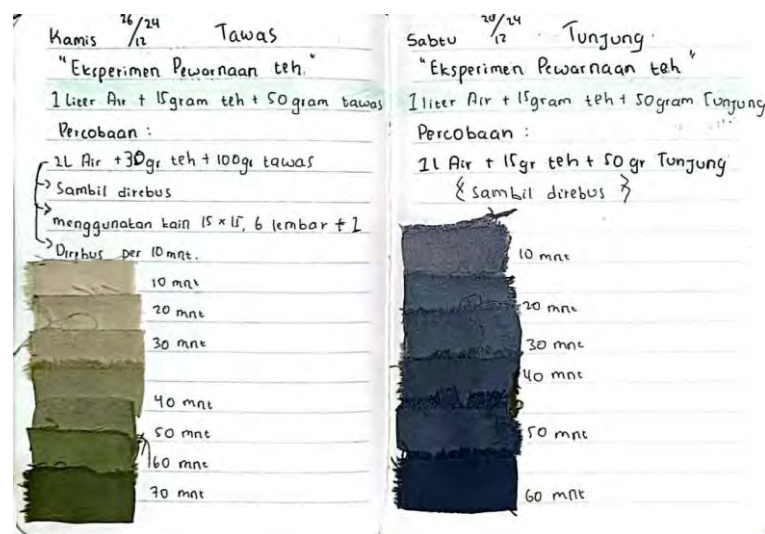 Kamis 26/24/12 Tawas
"Eksperimen Pewarnaan teh."
1 Liter Air + 15gram teh + 50 gram tawas
Percobaan :
2L Air + 30gr teh + 100gr tawas
Sambil direbus
menggunakan kain 15 x 15, 6 lembar + 1
Direbus per 10 mnt.
10 mnt
20 mnt
30 mnt
40 mnt
50 mnt
60 mnt
70 mnt
Sabtu 28/24/12 Tunjung
"Eksperimen Pewarnaan teh"
1 liter Air + 15gram teh + 50gram Tunjung
Percobaan :
1L Air + 15gr teh + 50 gr Tunjung
{ Sambil direbus }
10 mnt
20 mnt
30 mnt
40 mnt
50 mnt
60 mnt